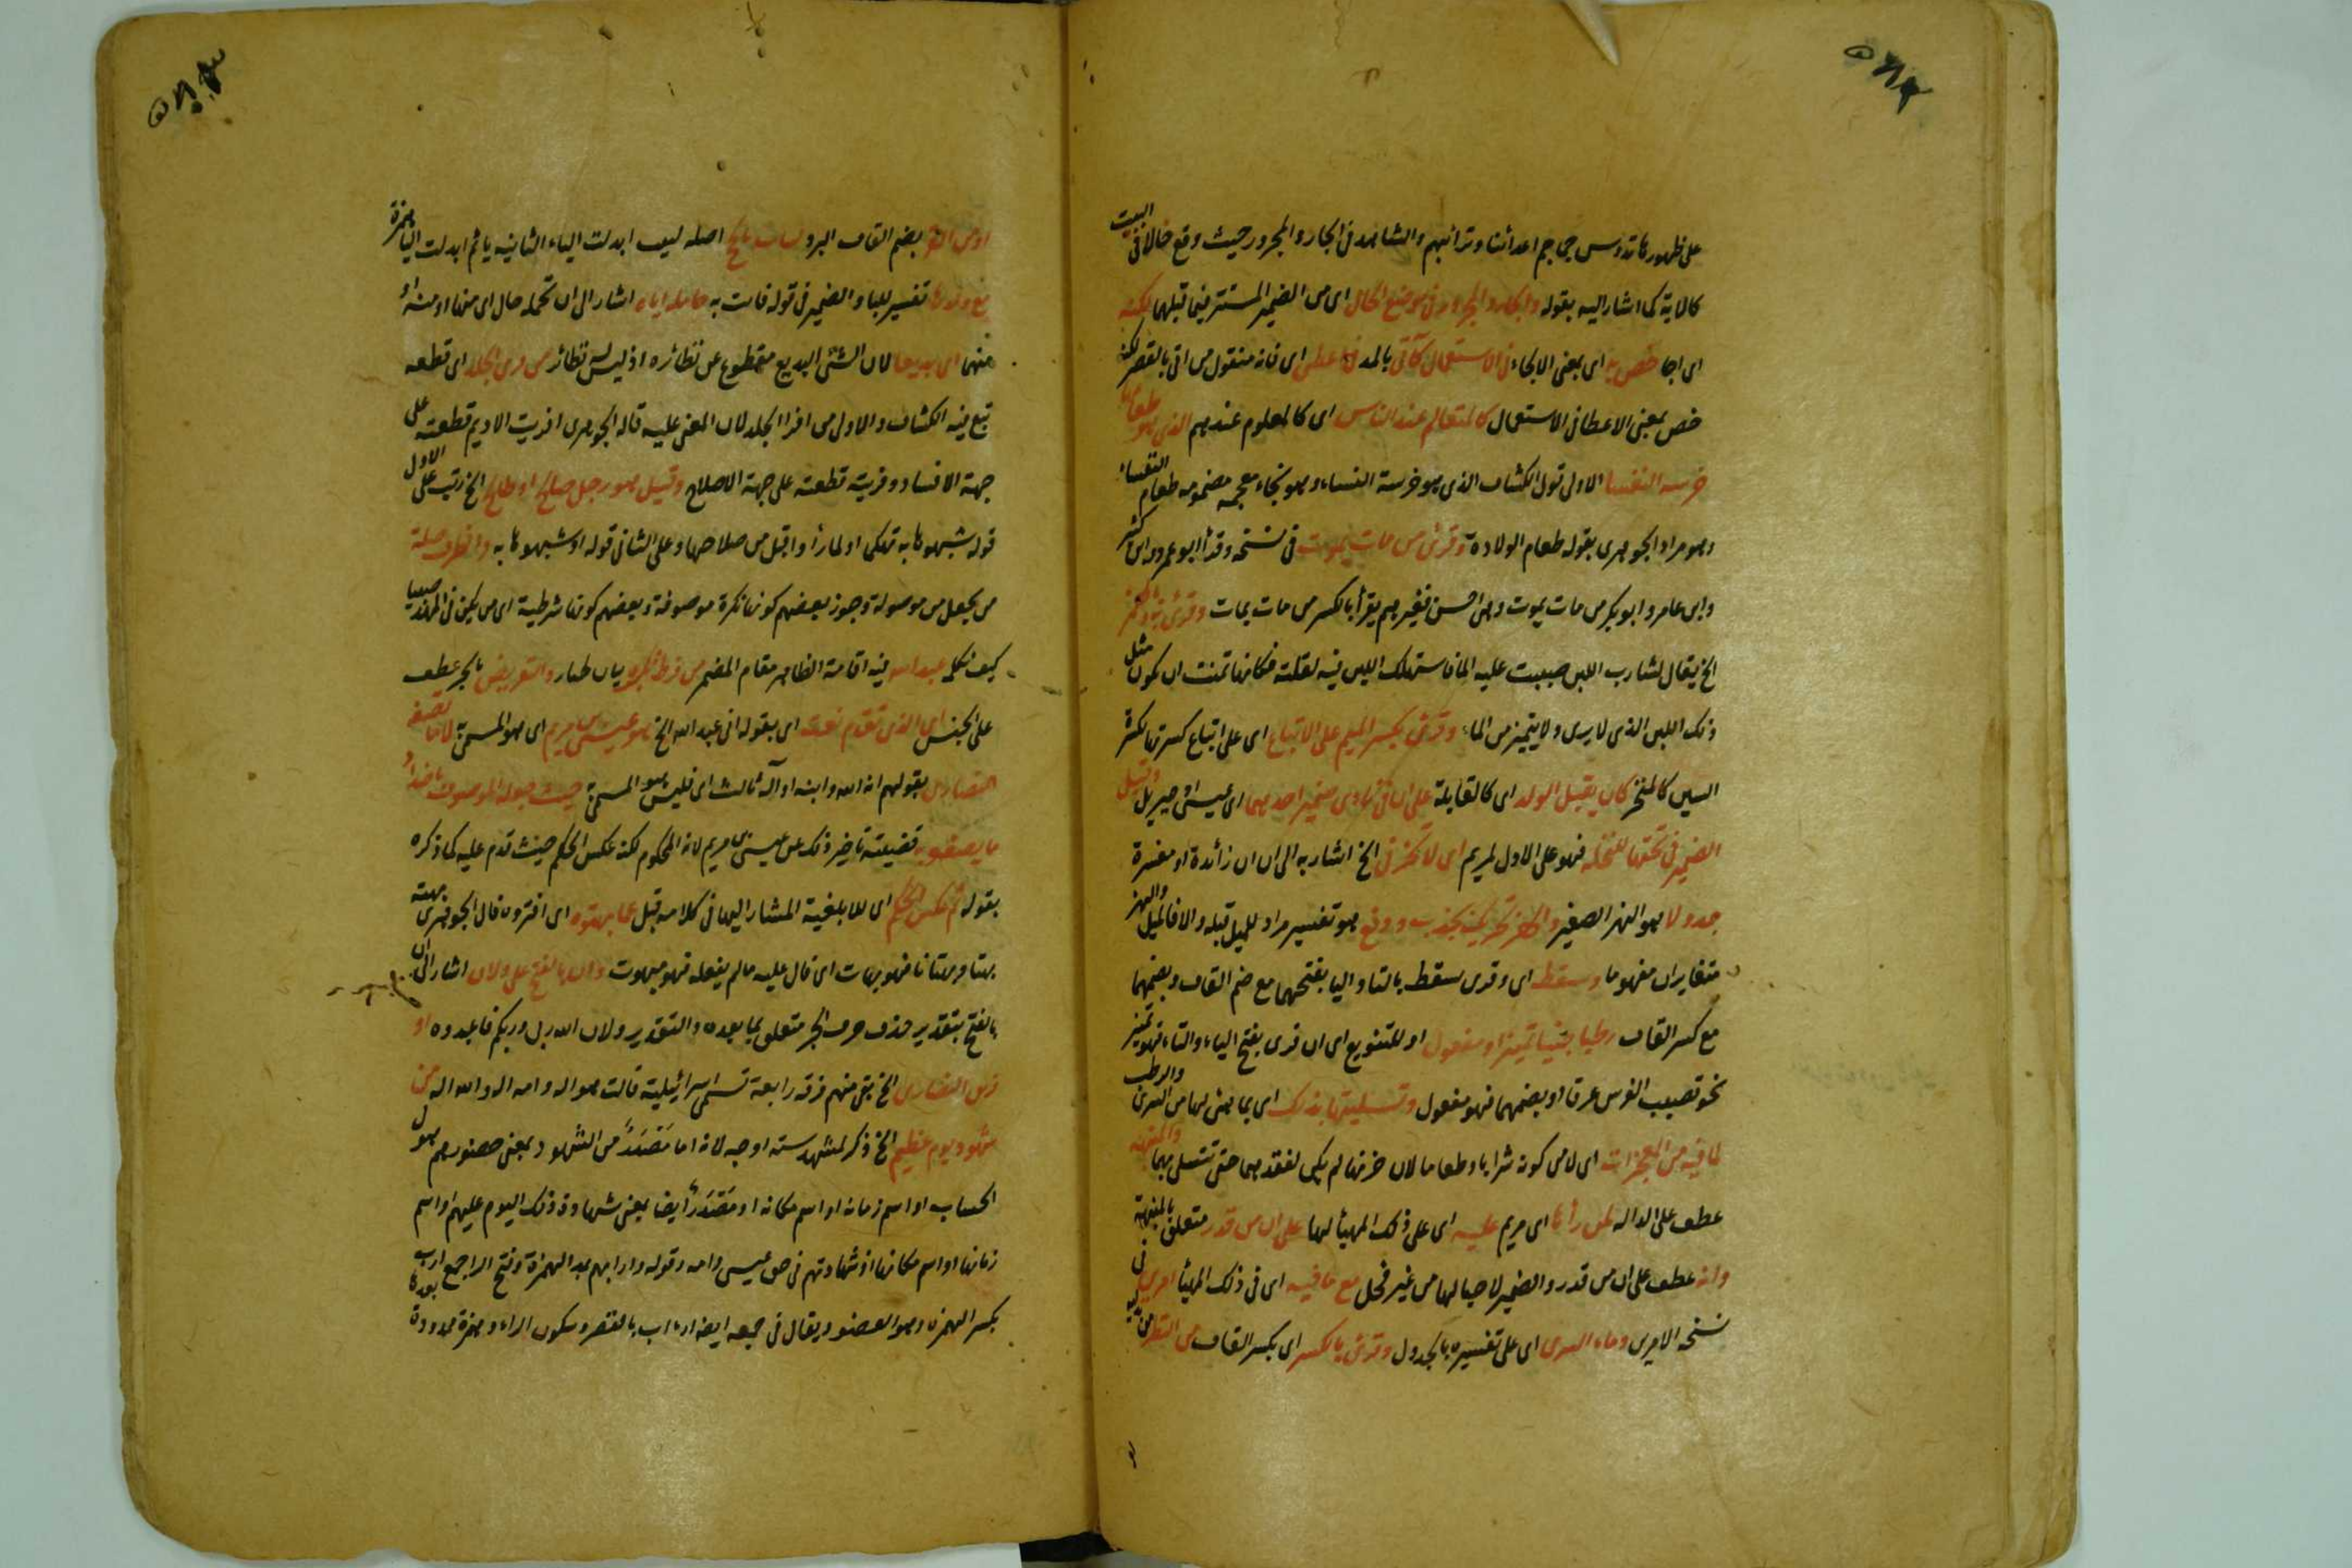 على ظهورها تدوس جماجم اعدائنا وترائبهم والشاهد فى الجار والمجرور حيث وقع حالا فى البيت
كالاية كما اشار اليه بقوله والجار والمجرور فى موضع الحال اى من الضمير المستتر فيما قبلهما لكنه
اى اجا خص به اى بمعنى الالجاء فى الاستعمال كآتى بالمد فى اعطى اى فانه منقول من اتى بالقصر لكنه
خص بمعنى الاعطا فى الاستعمال كالمتعالم عند الناس اى كالمعلوم عندهم الذى هو طعام
خرسه النفسا الاولى قول الكشاف الذى هو خرسة النفساء وهو بخاء معجمه مضمومه طعام النفساء
وهو مراد الجوهرى بقوله طعام الولادة وقرئ من مات يموت فى نسخه وقرأ ابو عمرو وابن كثير
وابن عامر وابو بكر من مات يموت وهى احسن فغيرهم يقرأ بالكسر من مات يمات وقرئ به وبالهمز
الخ يقال لشارب اللبن صببت عليه الماء فاستهلك اللبن فيه لقلته فكانها تمنت ان تكون مثل
ذلك اللبن الذى لا يرى ولا يتميز من الماء وقرئ بكسر الميم على الاتباع اى على اتباع كسرتها لكسرة
السين كالمنخر كان يقبل الولد اى كالقابلة على ان فى نادى ضمير احدهما اى عيسى او جبريل وقيل
الضمير فى تحتها للنخلة فهو على الاول لمريم اى لا تحزنى الخ اشار به الى ان ان زائدة او مفسرة
جدولا هو النهر الصغير والهز تحريك بجذب ودفع هو تفسير مراد للميل قبله والا فالميل والهز
متغايران مفهوما وتسقط اى وقرى تسقط بالتا واليا بفتحهما مع ضم القاف وبضمهما
مع كسر القاف رطبا جنيا تمييز او مفعول او للتنويع اى ان قرى بفتح الياء والتاء فهو تمييز
نحو تصبب الفرس عرقا او بضمهما فهو مفعول وتسليتها بذلك اى بما هيئ لها من السرى والرطب
لما فيه من المعجزات اى لا من كونه شرابا وطعاما لان حزنها لم يكن لفقدهما حتى تتسلى بهما والمنبهه
عطف على الداله لمن رأها اى مريم عليه اى على ذلك المهيأ لها على ان من قدر متعلق بالمنبهة
وانه عطف على ان من قدر والضمير لاحبالها من غير فحل مع ما فيه اى فى ذلك المهيأ امرين فى
نسخه الامرين وماء السرى اى على تفسيره بالجدول وقرئ بالكسر اى بكسر القاف من
او من القر بضم القاف البرد اصله ابدلت الياء الثانيه يا ثم ابدلت اليا همزة
تفسير للبا والضمير فى قوله فاتت به حاملة اياه اشار الى ان تحمله حال اى منها او منه او
منهما اى بديعا لان الشئ البديع مقطوع عن نظائره اذ ليس له نظائر من فرى الجلد اى قطعه
تبع فيه الكشاف والاولى من افرا الجلد لان المعنى عليه قاله الجوهرى افريت الاديم قطعته على
جهة الافساد وفريته قطعته على جهة الاصلاح وقيل هو رجل صالح او طالح الخ رتب على الاول
قوله شبهوها به تهكما او لما رأوا قبل من صلاحها وعلى الثانى قوله او شبهوها به والظرف صلة
من يجعل من موصولة وجوز بعضهم كونها نكرة موصوفة وبعضهم كونها شرطية اى من يكن فى المهد صبيا
كيف نكلمه عبد الله فيه اقامة الظاهر مقام المضمر والتعريض بالجر عطف
على الجنس اى الذى تقدم نعته اى بقوله انى عبد الله الخ هو عيسى بن مريم اى هو المسمى لا ما تصفه
النصارى بقولهم انه الله وابنه او آله ثالث اى فليس هو المسمى حيث جعله الموصوف باضداد
ما يصفونه قضيته تاخير ذلك عن عيسى بن مريم لانه المحكوم لكنه عكس الحكم حيث قدم عليه كما ذكره
بقوله ثم عكس الحكم اى للابلغية المشار اليها فى كلامه قبل عما بهتوه اى افتروه قال الجوهرى بهته
بهتا وبهتانا فهو بهات اى قال عليه ما لم يفعله فهو مبهوت وان بالفتح على ولان اشار الى ان
بالفتح بتقدير حذف حرف الجر متعلق بما بعده والتقدير ولان الله ربى وربكم فاعبدوه او
فرق النصارى الخ بقى منهم فرقه رابعة تسمى اسرائيلية قالت هو اله وامه اله والله اله من
شهود يوم عظيم الخ ذكر لمشهد سته اوجه لانه اما مصدر من الشهود بمعنى حضورهم هول
الحساب او اسم زمانه او اسم مكانه او مصدر ايضا بمعنى شهادة ذلك اليوم عليهم او اسم
زمانها او اسم مكانها او شهادتهم فى حق عيسى وامه وقوله وارابهم بمد الهمزة وفتح الراجمع ارب
بكسر الهمزه وهو العضو ويقال فى جمعه ايضا ارءاب بالقصر وسكون الراء وهمزة ممدودة بعدها